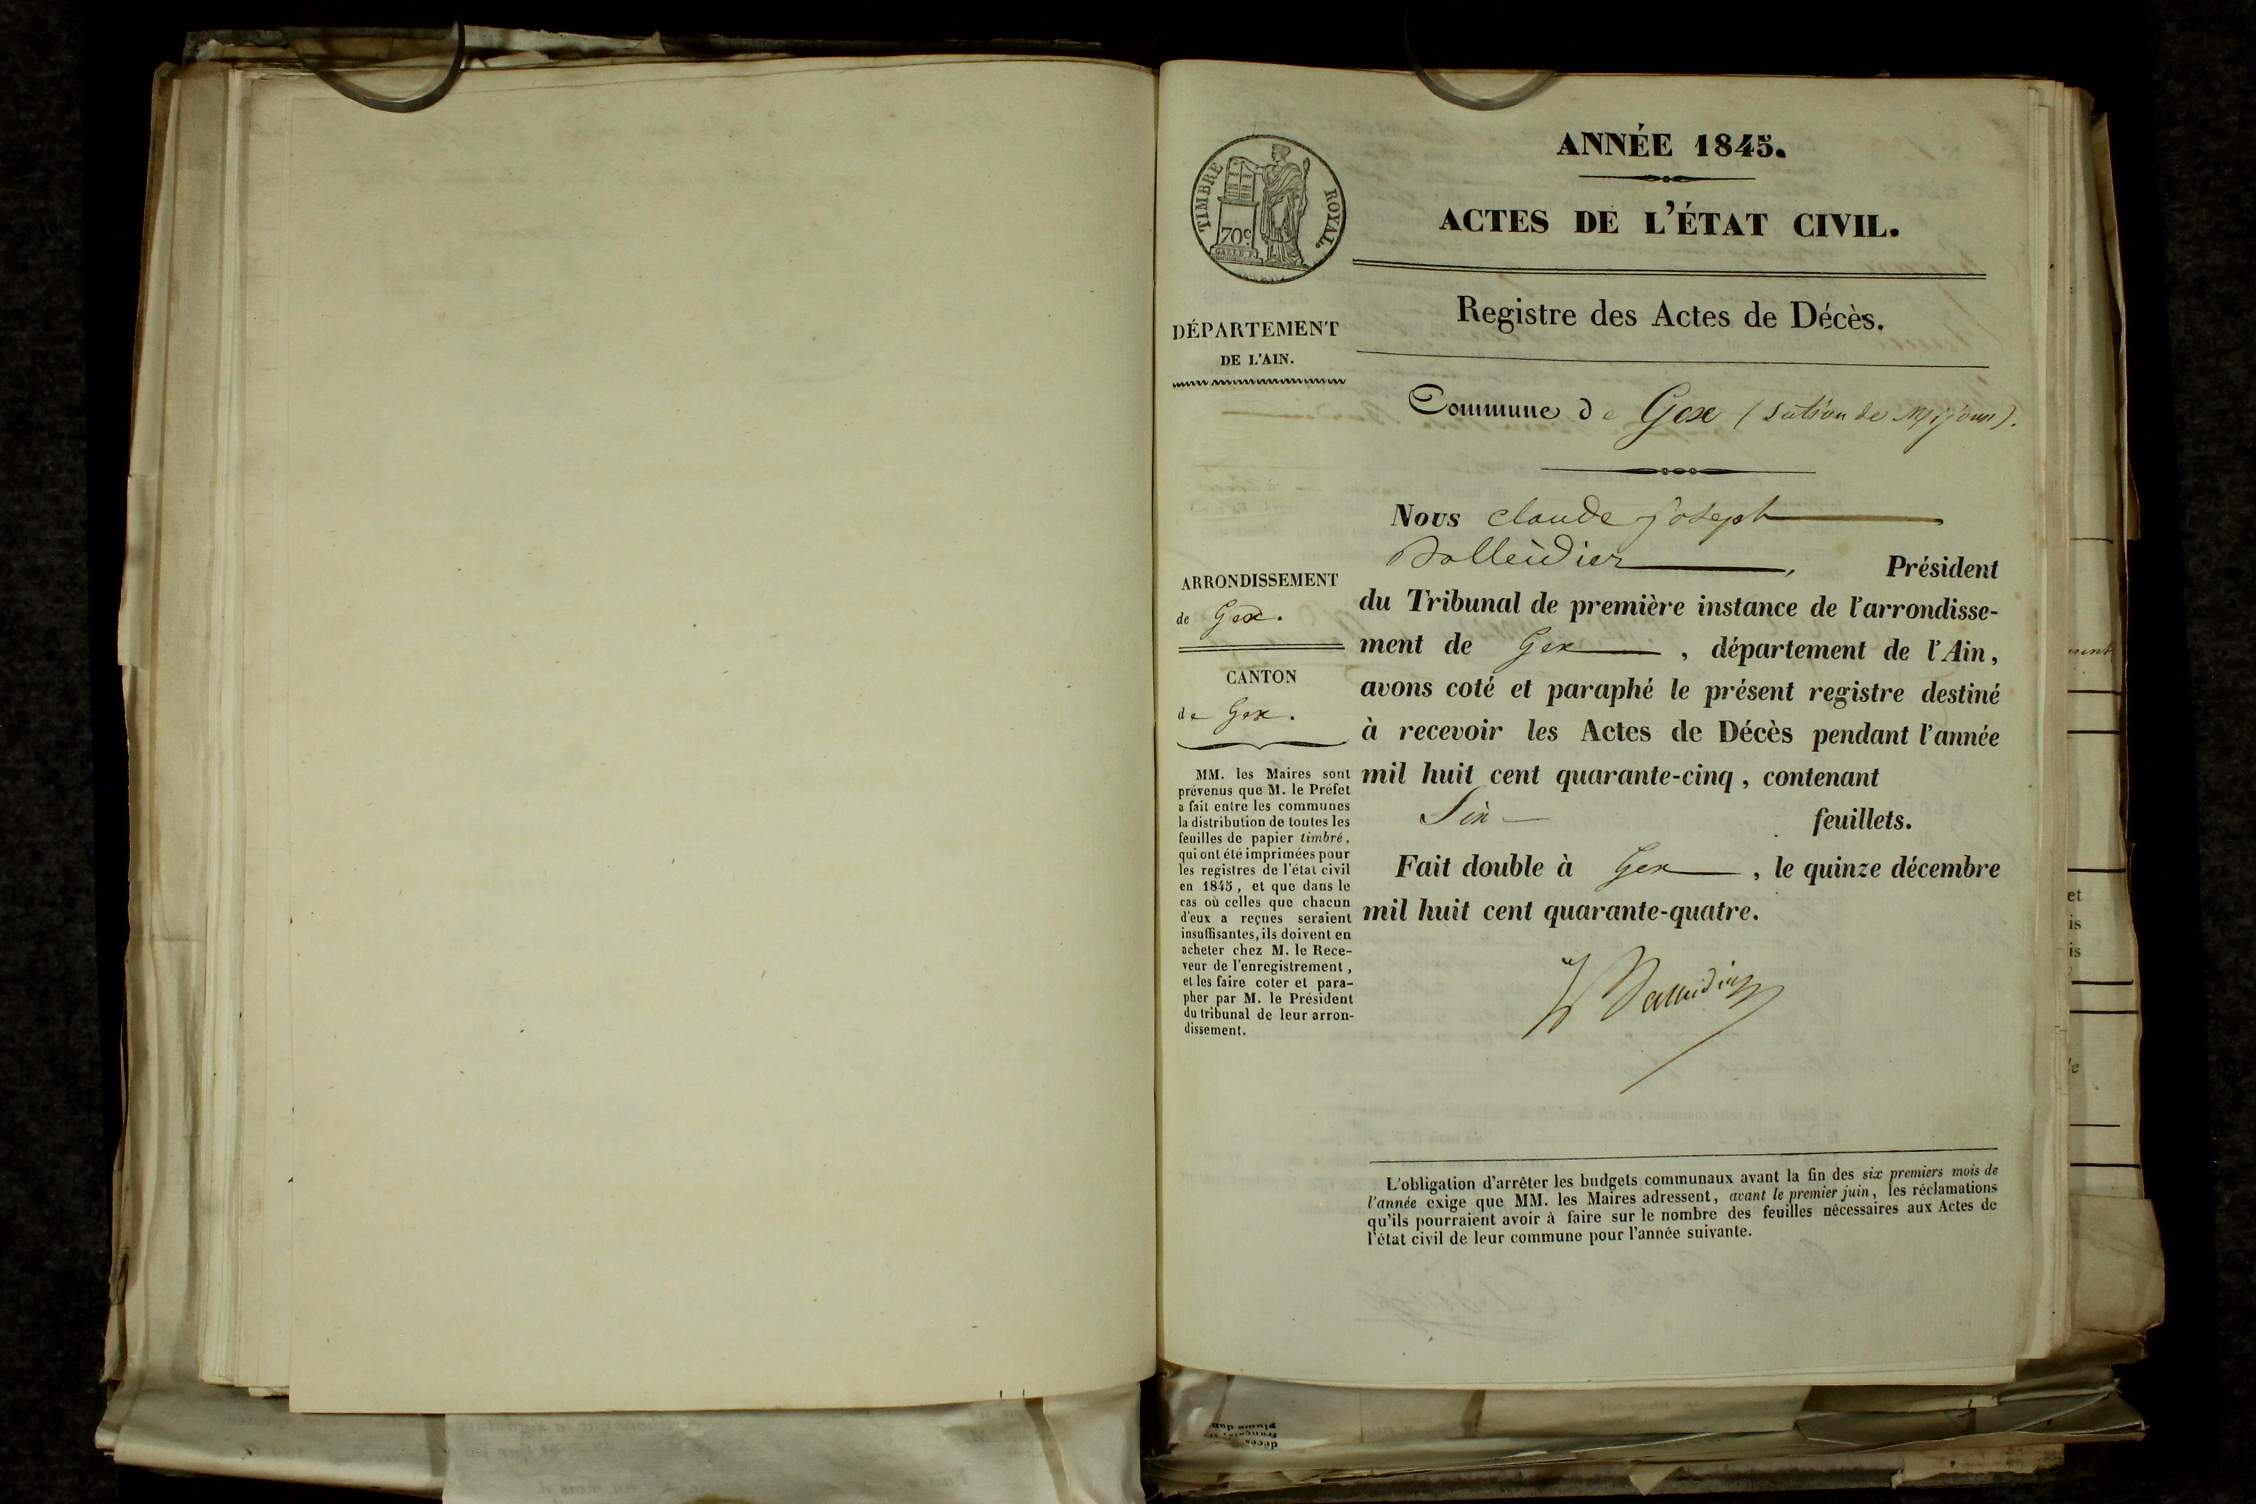 ANNÉE 1845.
ACTES DE L'ÉTAT CIVIL.
TIMBRE ROYAL.
70c
GALLE F.
DÉPARTEMENT
DE L'AIN.
Registre des Actes de Décès.
Commune de Gex (Section de Mijoux).
Nous Claude Joseph
Balleidier, Président
du Tribunal de première instance de l'arrondisse-
ment de Gex, département de l'Ain,
avons coté et paraphé le présent registre destiné
à recevoir les Actes de Décès pendant l'année
mil huit cent quarante-cinq, contenant
Six feuillets.
Fait double à Gex, le quinze décembre
mil huit cent quarante-quatre.
Balleidier
ARRONDISSEMENT
de Gex.
CANTON
de Gex.
MM. les Maires sont
prévenus que M. le Préfet
a fait entre les communes
la distribution de toutes les
feuilles de papier timbré,
qui ont été imprimées pour
les registres de l'état civil
en 1845, et que dans le
cas où celles que chacun
d'eux a reçues seraient
insuffisantes, ils doivent en
acheter chez M. le Rece-
veur de l'enregistrement,
et les faire coter et para-
pher par M. le Président
du tribunal de leur arron-
dissement.
L'obligation d'arrêter les budgets communaux avant la fin des six premiers mois de
l'année exige que MM. les Maires adressent, avant le premier juin, les réclamations
qu'ils pourraient avoir à faire sur le nombre des feuilles nécessaires aux Actes de
l'état civil de leur commune pour l'année suivante.
et
is
is